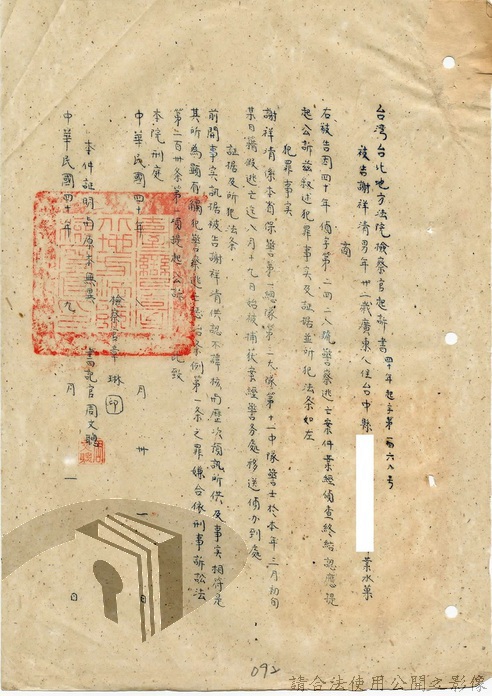 台灣台北地方法院檢察官起訴書 四十年起字第一六八号
被告謝祥清男年卅二歲廣東人住台中縣 業水菓
商
右被告因四十年偵字第二四二八號警察逃亡案件業經偵查終結認應提
起公訴茲敘述犯罪事实及証據並所犯法条如左
犯罪事实
謝祥清係本省保警第一總隊第二大隊第十一中隊警士於本年三月初旬
某日藉故逃亡迄八月十九日始被捕获案經警务處移送偵办到處
証据及所犯法条
前開事实訊据被告謝祥清供認不諱核與歷次預訊所供及事实相符是
其所為顯有觸犯警察逃亡 条例第一条之罪嫌合依刑事訴訟法
第二百卅条第一 偵提起公訴 此致
本院刑庭
中華民國四十年 八 月 卅一 日
檢察官韋琳 印
本件証明與原本無異
書記官周文
中華民國四十年 九 月 一 日
092
請合法使用公開之影像